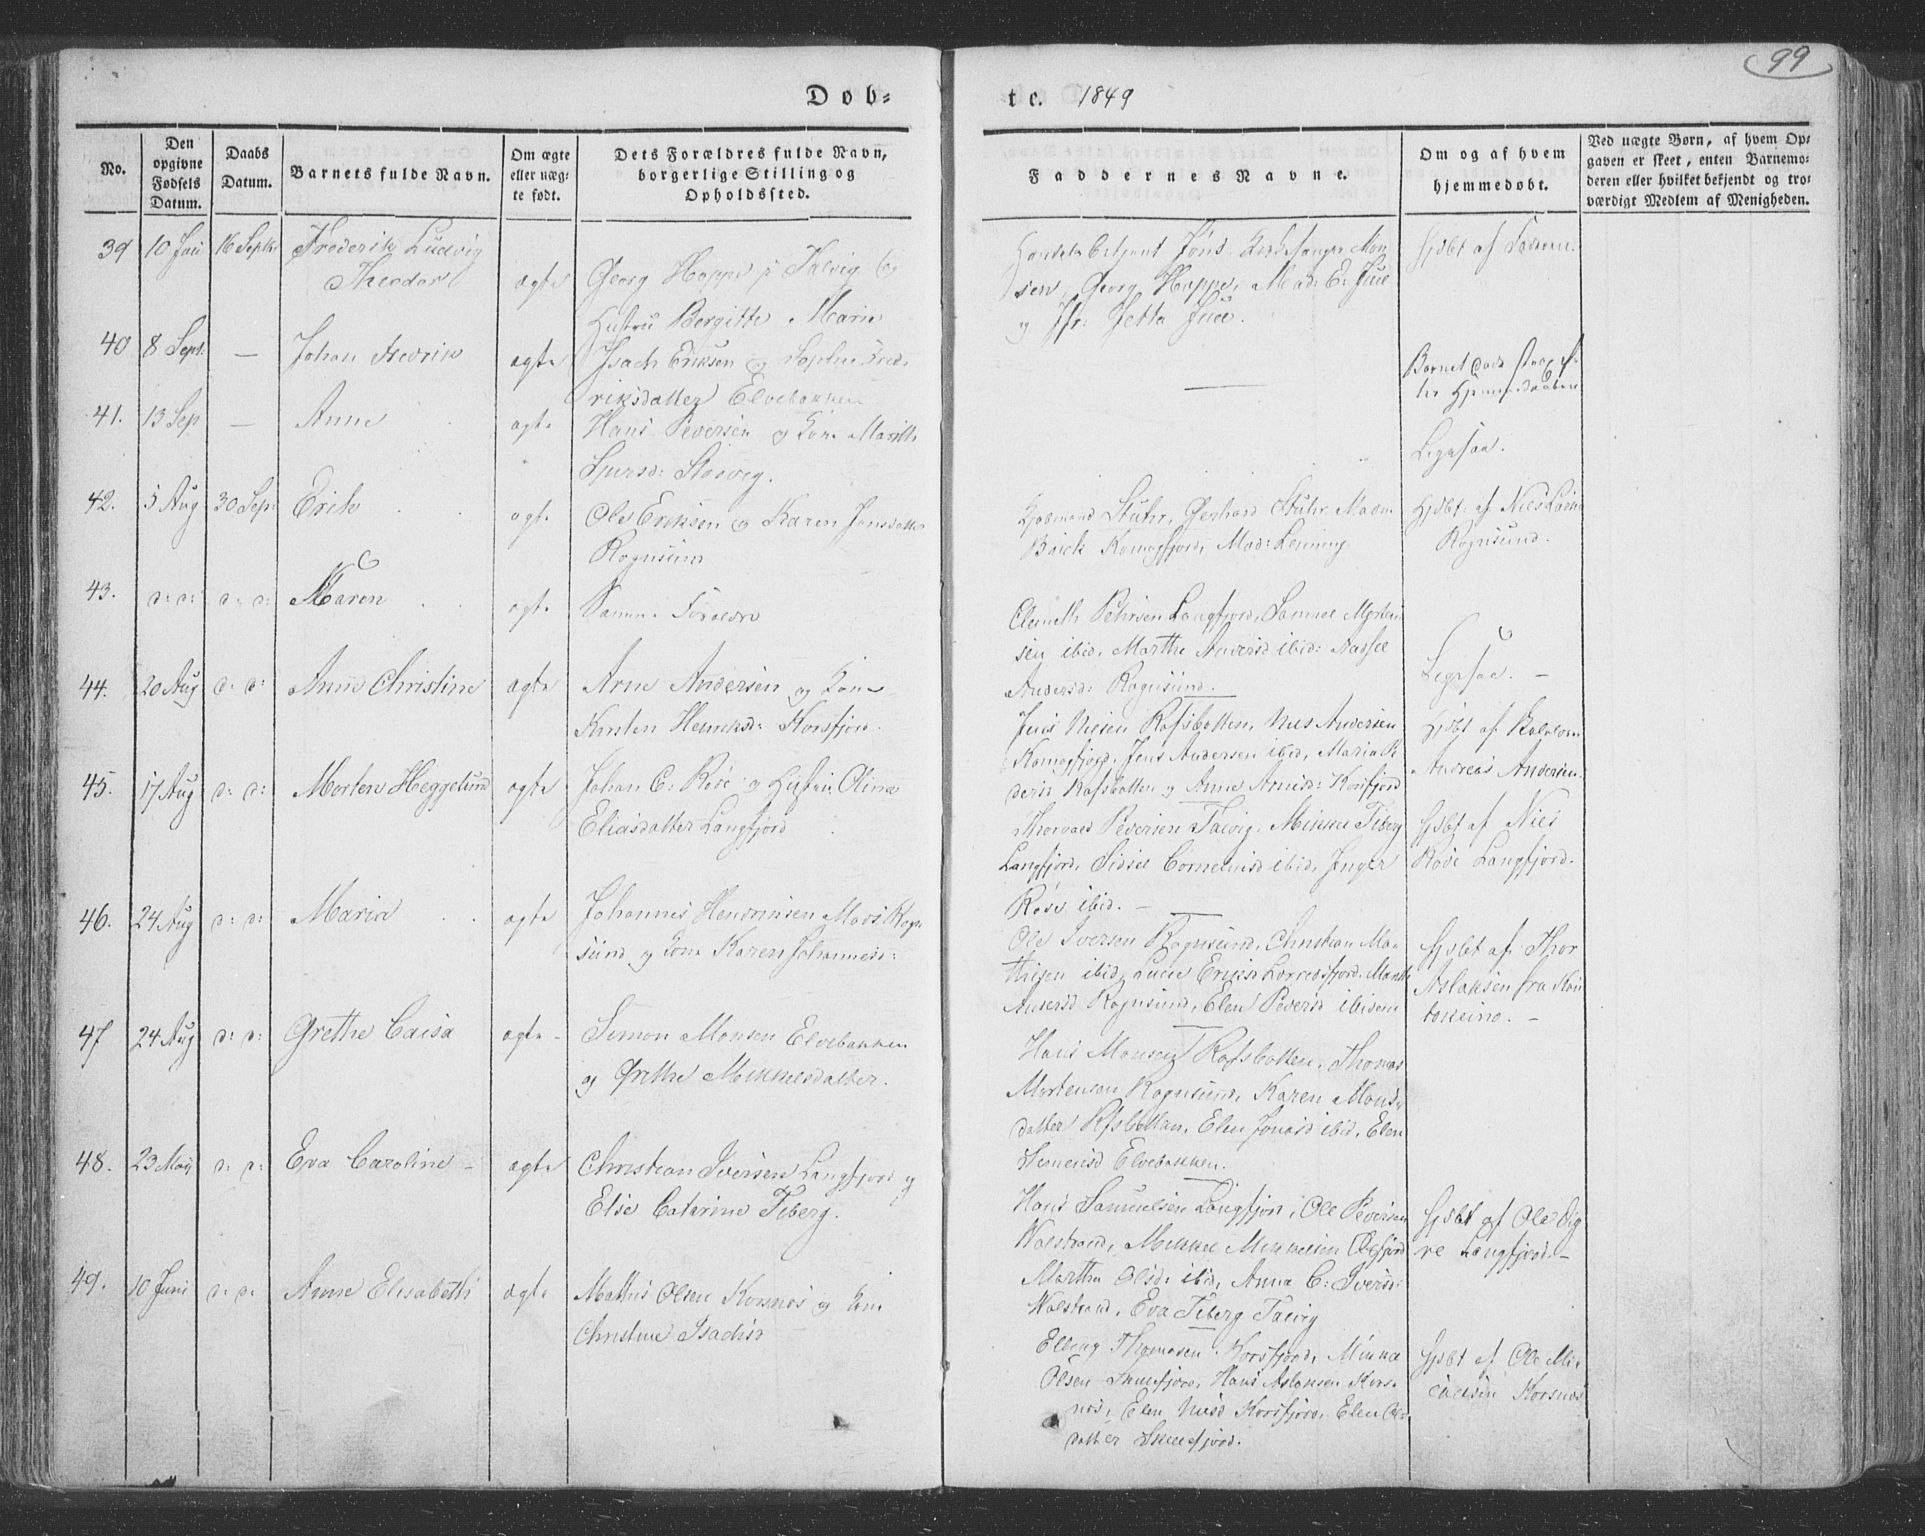 99
Døb-
te. 1849
No.
Den opgivne Fødsels Datum.
Daabs Datum.
Barnets fulde Navn.
Om ægte eller uægte født.
Dets Forældres fulde Navn, borgerlige Stilling og Opholdssted.
Faddernes Navne.
Om og af hvem hjemmedøbt.
Ved uægte Børn, af hvem Opgaven er skeet, enten Barnemoderen eller hvilket bekjendt og troværdigt Medlem af Menigheden.
39 10 Juni 16 Septbr Frederik Ludvig
Theodor ægte Georg Hoppe i Talvig og
Hustru Bergitte Marie
Handelsbetjent Jøns, Kirkesanger Mon-
sen, Georg Hoppe, Mad: E. Juel
og Jfr: Jetta Juel.
Hjdbt af Faderen.
40 8 Sept. — Johan Fredrik ægte Isach Eriksen og Sophie Fred-
riksdatter Elvebakken
—
Barnet døde strax ef-
ter Hjemmedaaben
41. 13 Sep — Anne ægte Hans Pedersen og Kone Marith
Sjursd:
Ligesaa.
42. 5 Aug 30 Sep: Erik ægte Ole Eriksen og Karen Jonsdatter
Rognsund
Stuhr, Gerhard Stuhr, Madm
Buck Komagfjord, Mad: Lenning
Hjdbt: af Niels
Rognsund.
43. d: d: d: d: Maren ægte Samme Forældre
Clemeth Pehrsen Langfjord, Samuel Morten-
sen ibid, Marthe Andersd ibid:
Andersd: Rognsund.
Ligesaa. —
44. 20 Aug d: d: Anne Christine ægte Arne Andersen og Kone
Kirsten Henriksd: Korsfjord.
Jens Nielsen Rafsbotten, Niels Andersen
Komagfjord, Jens Andersen ibid, Maria Pe-
ders Rafsbotten og Anne Arnesd: Korsfjord
Hjdbt af
Andreas Andersen.
45. 17 Aug d: d: Morten Heggelund ægte Johan C. Røse og Hustru Olina
Eliasdatter Langfjord
Thorvald Pedersen Talvig, Mikkel Tiberg
Langfjord, Sidsel Corneliusd ibid, Inger
Røse ibid. —
Hjdbt af Niels
Røse Langfjord.
46. 24 Aug d: d: Maria ægte Johannes Henriksen Rogn-
sund og Kone Karen Johannesd:
Ole Iversen Rognsund, Christian Ma-
thisen ibid, Lucie Eriksd
Andersd Rognsund, Elen Pedersd ibidem
Hjdbt af Thor
Aslaksen fra Kou-
tokeino. —
47 24 Aug d: d: Grethe Caisa ægte Simon Monsen Elvebakken
og Grethe Mikkelsdatter.
Hans Monsen Rafsbotten, Thomas
Mortensen Rognsund, Karen Mons-
datter Rafsbotten, Elen Jonasd ibid, Elen
Simensd Elvebakken.
48. 23 Maii d: d: Eva Caroline ægte Christian Iversen Langfjord og
Elise Catarine Tiberg.
Hans Samuelsen Langfjord, Ole Pedersen
Kalstrand, Mikkel Mikkelsen
Marthe Olsd: ibid, Anna C: Iversd
Kalstrand, Eva Tiberg Talvig
Hjdbt af Ole Dig-
re Langfjord. —
49. 10 Juni d: d: Anne Elisabeth ægte Mathis Olsen Korsnæs og Kone
Christine Isachsd
Elling Thomasen Korsfjord, Minna
Olsen Skillefjord, Hans Aslaksen Kors-
næs, Elen Nilsd Korsfjord, Elen Ols-
datter Skillefjord.
Hjdbt af Ole Mi-
Korsnæs